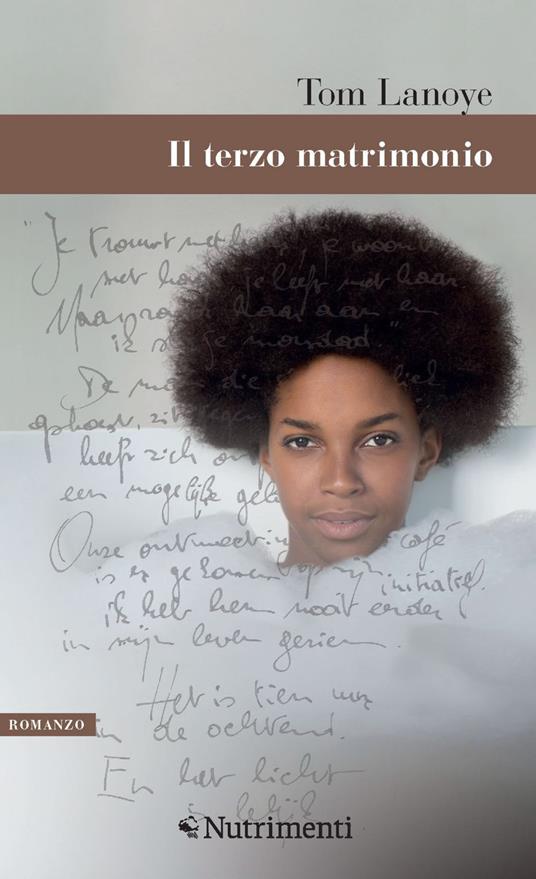 Tom Lanoye
Il terzo matrimonio
"Je trouwt met haar, je woont
met haar, je leeft met haar.
Maar raak haar aan en
ik sla je morsdood."
De man die
gehoest, zit tegen
heeft zich
een mogelijke
Onze ontmoeting café
is er gekomen op mijn initiatief.
Ik heb hem nooit eerder
in mijn leven gezien.
Het is tien uur
in de ochtend.
En het licht
is lelijk
ROMANZO
Nutrimenti